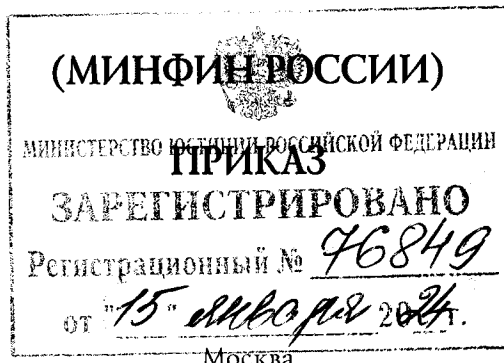 (МИНФИН РОССИИ)
МИНИСТЕРСТВО ЮСТИЦИИ РОССИЙСКОЙ ФЕДЕРАЦИИ
ПРИКАЗ
ЗАРЕГИСТРИРОВАНО
Регистрационный № 76849
от "15" января 2024г.
Москва